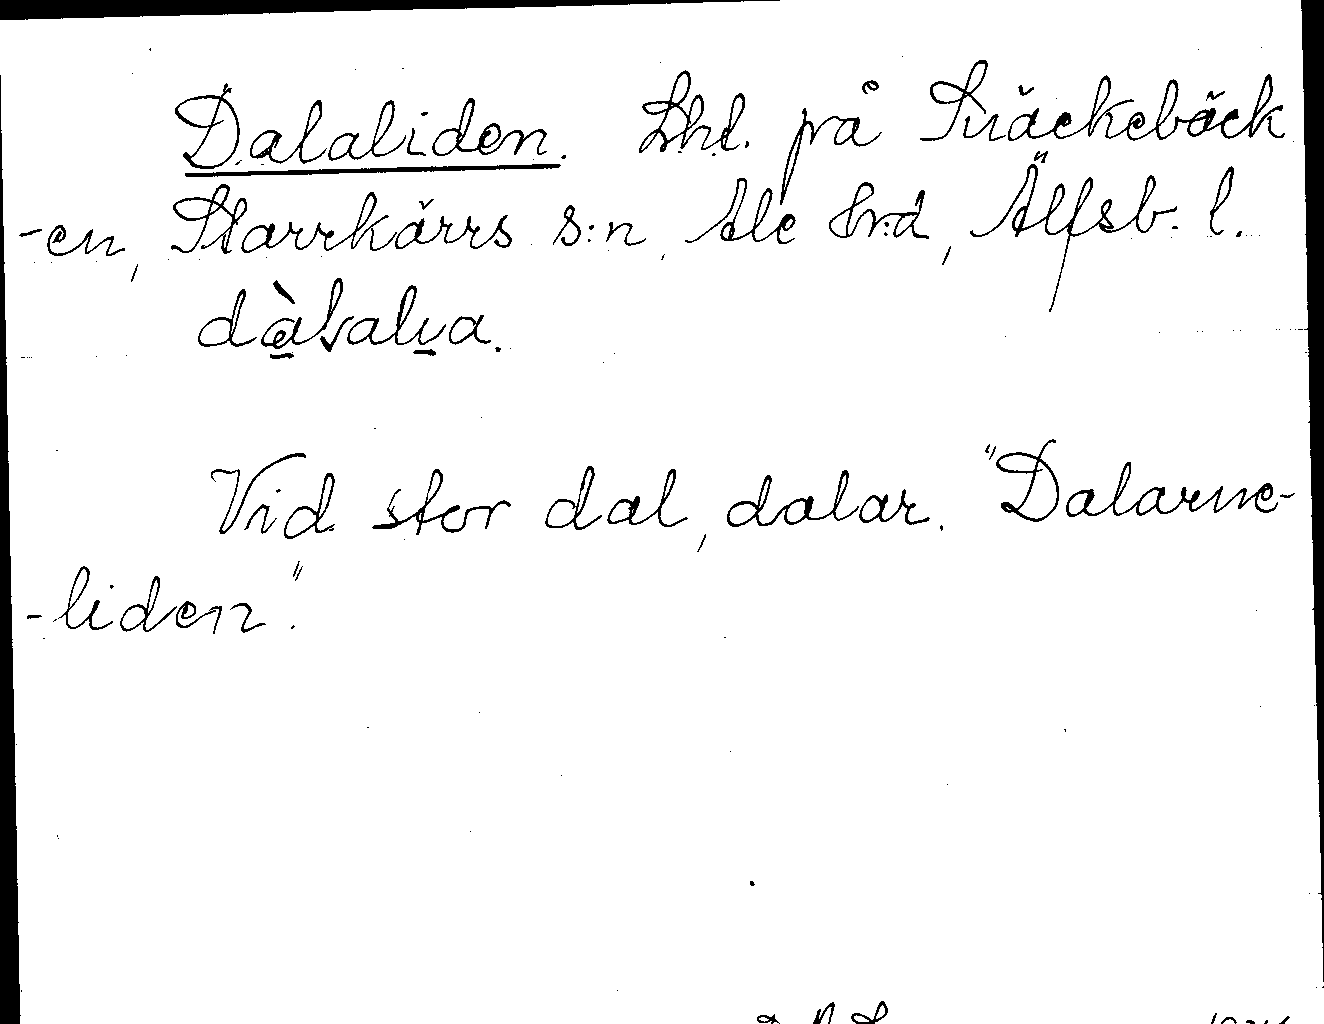 Dalaliden. Lhl. på Snäckebäck
-en, Starrkärrs s:n, Ale hrd, Älfsb. l.
Vid stor dal, dalar. "Dalarne-
-liden".